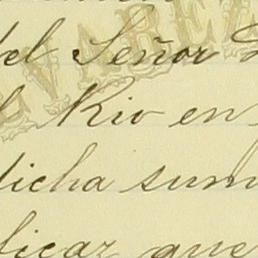 del Señor
Rio en
dicha sum
ficaz que